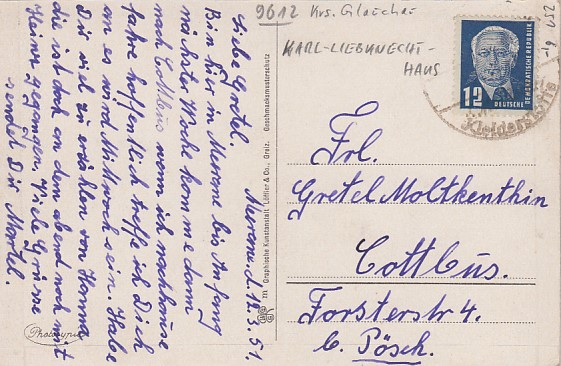 9612 Krs. Glauchau
KARL-LIEBKNECHT-
HAUS
12
DEUTSCHE
DEMOKRATISCHE REPUBLIK
Kleiderstoffe
Meerane d. 12.3.51.
Liebe Gretel.
Bin hier in Meerane bis Anfang
nächster Woche komme dann
nach Cottbus wenn ich nachhause
fahre hoffentlich treffe ich Dich
an es wird Mittwoch sein. Habe
Dir viel zu erzählen von Hanna
die ist doch an dem abend noch mit
Heinz gegangen. Viele Grüsse
sendet Dir Martel.
Photopypie
111 Graphische Kunstanstalt Löffler & Co., Greiz. Geschmacksmusterschutz
Frl.
Gretel Moltkenthin
Cottbus.
Forsterstr 4.
b. Pösch.